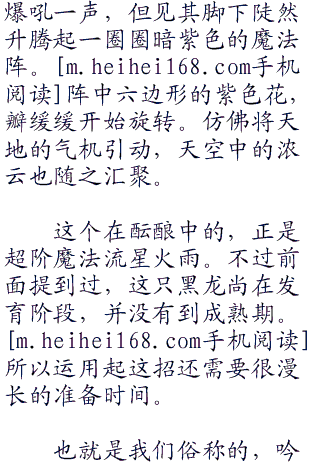 爆吼一声，但见其脚下陡然
升腾起一圈圈暗紫色的魔法
阵。[m.heihei168.com手机
阅读]阵中六边形的紫色花，
瓣缓缓开始旋转。仿佛将天
地的气机引动，天空中的浓
云也随之汇聚。
这个在酝酿中的，正是
超阶魔法流星火雨。不过前
面提到过，这只黑龙尚在发
育阶段，并没有到成熟期。
[m.heihei168.com手机阅读]
所以运用起这招还需要很漫
长的准备时间。
也就是我们俗称的，吟